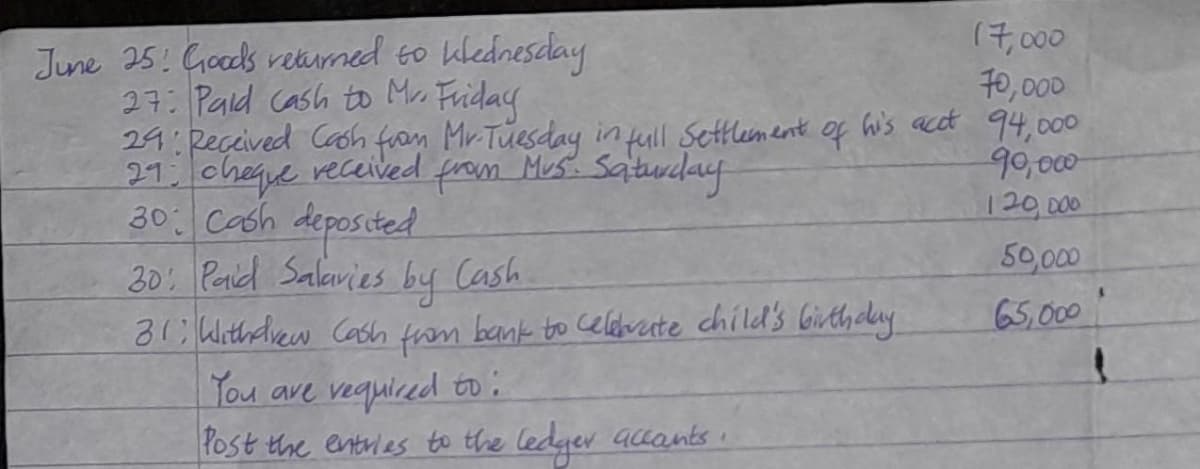 June 25: Goods returned to Wednesday 17,000
27: Paid cash to Mr. Friday 70,000
29: Received Cash from Mr. Tuesday in full Settlement of his acct 94,000
29: cheque received from Mrs. Saturday 90,000
30: Cash deposited 120,000
30: Paid Salaries by Cash 50,000
31: Withdrew Cash from bank to celebrate child's birthday 65,000
You are required to:
Post the entries to the ledger accants.